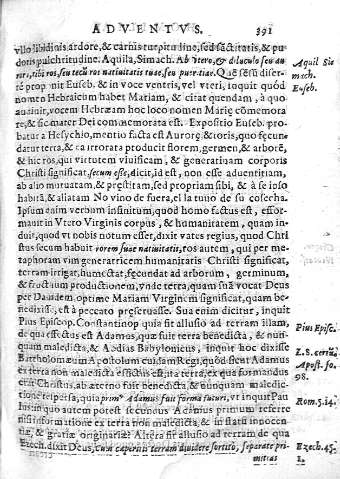 ADVENTVS. 391
vllo libidinis ardore, & carnis turpitudine, sed sãctitatis, & pu
doris pulchritudine. Aquilla, Simach. Ab vtero, & diluculo seu au
Aquil Sim
rore, tibi ros, seu tecũ ros natiuitatis tuae, seu pueritiae. Que
mach.
Euseb. & in voce ventris, vel vteri, inquit quòd
Euseb.
nomen Hebraicum habet Mariam, & citat quendam, à quo
audiuit, vocem Hebræam hoc loco nomen Marię commemora
re, & sic mater Dei commemorata est. Expositio Euseb. pro
batur à Hesychio, mentio facta est Auroræ & roris, quo fęcun
datur terra, & ea irrorata producit florem, germen, & arborẽ,
& hic ros, qui virtutem viuificam, & generatiuam corporis
Christi significat secum est, dicit, id est, non esse aduentitiam,
ab alio mutuatam, & pręstitam, sed propriam sibi, & à se ipso
habitã, & aliatam No vino de fuera, el la tuuo de su cosecha.
Ipsum enim verbum infinitum, quod homo factus est, effor-
mauit in Vtero Virginis corpus, & humanitatem, quam in-
duit, quod vt nobis notum esset, dixit vates regius, quod Chri
stus secum habuit rorem suae natiuitatis, ros autem, qui per me-
taphoram vim generatricem humanitatis Christi significat,
terram irrigat, humectat, fęcundat ad arborum, germinum,
& fructuum productionem, vnde terra, quam suã vocat Deus
per Dauidem optime Mariam Virginem significat, quam be-
nedixisse, est à peccato pręseruasse. Sua enim dicitur, inquit
Pius Episcop. Constantinop quia sit allusio ad terram illam,
Pius Episc.
de qua effectus est Adamus, quæ fuit terra benedicta, & nun-
quam maledicta, & Abdias Babylonicus, inquit hoc dixisse
Bartholomæum Apostolum cuidam Regi, quòd sicut Adamus
Apost. fo.
ex terra non maledicta effectus est, ita terra, ex qua formandus
98.
erat Christus, ab æterno fuit benedicta, & nunquam maledic-
tione respersa, quia primus Adamus fuit forma futuri, vt inquit Pau
Rom. 5. 14.
lus: in quo autem potest secundus Adamus primum referre
nisi informatione ex terra non maledicta, & in statu innocen
tiæ, & gratiæ originariæ Altera sit allusio ad terram de qua
Ezech. dixit Deus, cum cæperitis terram diuidere sortito, separate pri-
Ezech. 45.
1.
mitias